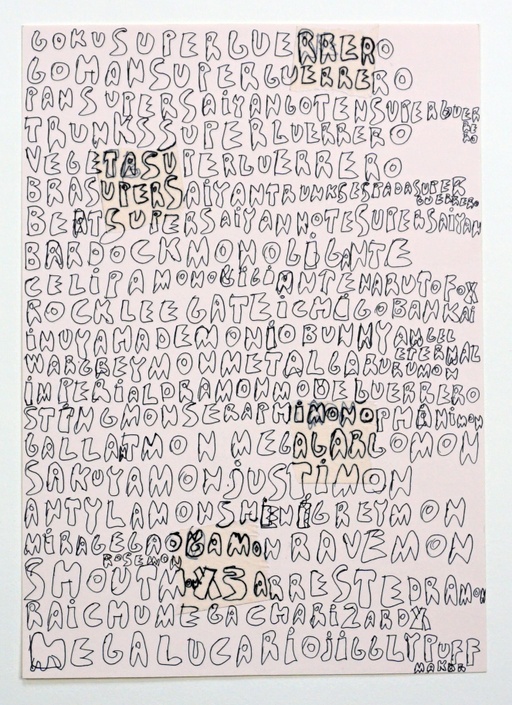 GOKUSUPERGUERRERO
GOHANSUPERGUERRERO
PANSUPERSAIYANGOTENSUPERGUERRERO
TRUNKSSUPERGUERRERO
VEGETASUPERGUERRERO
BRASUPERSAIYANTRUNKSESPADASUPERGUERRERO
BERTSUPERSAIYANNOTESUPERSAIYAN
BARDOCKMONOGIGANTE
CELIPAMONOGIGIANTENARUTOFOX
ROCKLEEGATEICHIGOBANKAI
INUYAHADEMONIOBUNNYANGELETERMAL
WARGREYMONMETALGARURUMON
IMPERIALDRAMONMODELGUERRERO
STINGMONSERAPHIMONOPHANIMON
GALLATMON MEGALARGOMON
SAKUYAMONJUSTIMON
ANTYLAMONSHENIGREYMON
MIRAGEGAOGAMONRAVEMON
ROSEMON
SHOUTMONX5ARRESTEDRAMON
RAICHUMEGACHARIZARDX
MEGALUCARIOJIGGLYPUFF